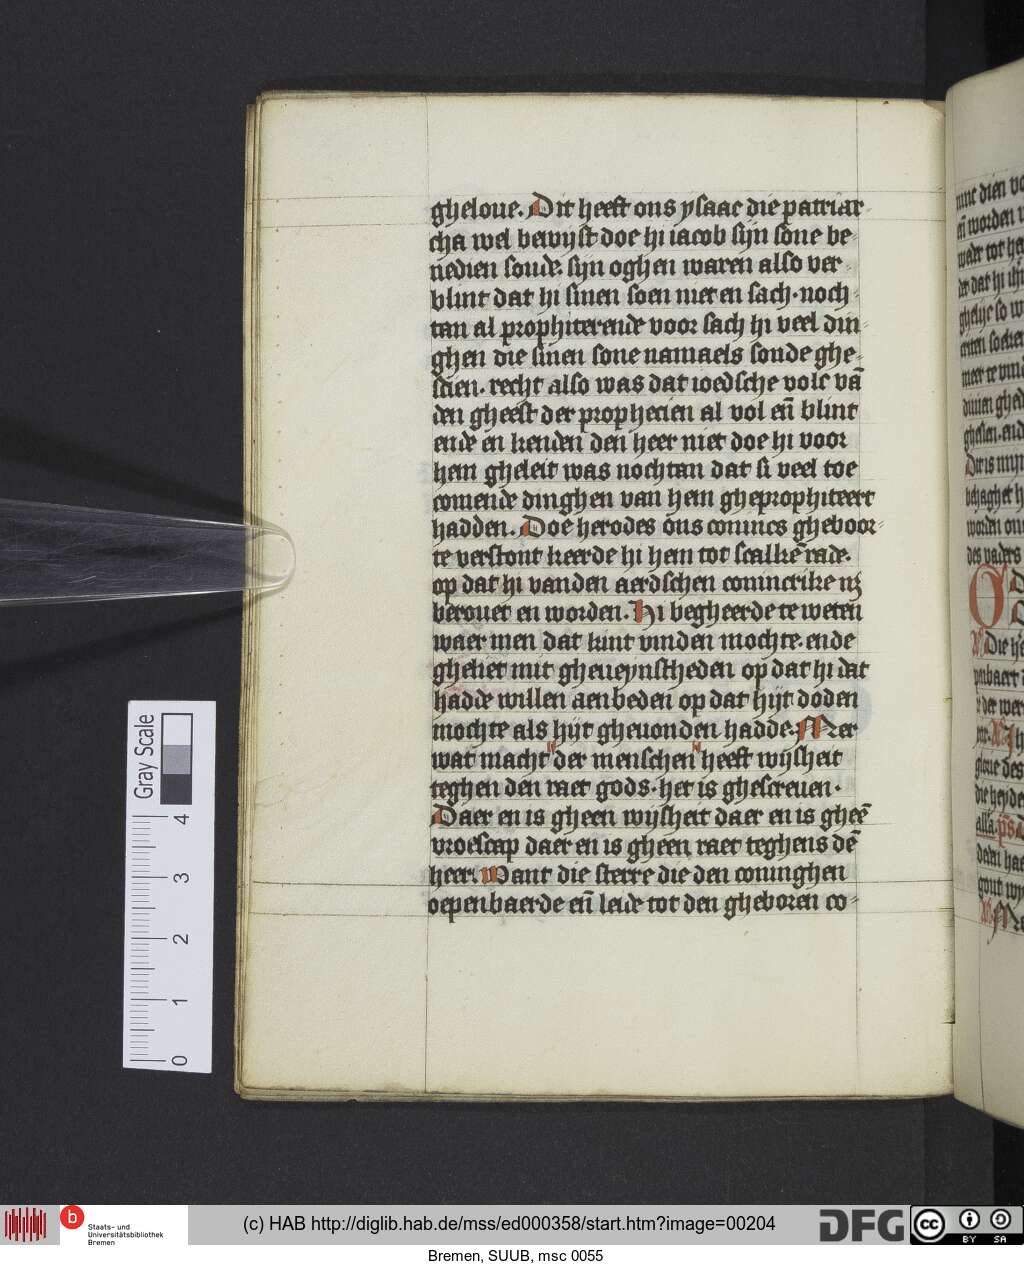 gheloue. Dit heeft ons ysaac die patriar
cha wel bewijst doe hi iacob sijn sone be
nedien soude. sijn oghen waren also ver
blint dat hi sinen soen niet en sach. noch
tan al prophiterende voor sach hi veel din
ghen die sinen sone namaels soude ghe
scien. recht also was dat ioedsche volc vā
den gheest der prophecien al vol eñ blint
ende en kenden den heer niet doe hi voor
hem gheleit was nochtan dat si veel toe
comende dinghen van hem ghepropiteert
hadden. Doe herodes ons conincs gheboor
te verstont keerde hi hem tot scalkē rade.
op dat hi vanden aerdschen conincrike nz
berouet en worden. Hi begheerde te weten
waer men dat kint vinden mochte. ende
ghehet mit gheueynstheden op dat hi dat
hadde willen aenbeden op dat hijt doden
mochte als hijt gheuonden hadde. Mer
wat macht der menschen heeft wijsheit
teghen den raet gods. het is ghescreuen.
Daer en is gheen wijsheit daer en is gheē
vroescap daer en is gheen raet teghens dē
heer. Want die sterre die den coninghen
oepenbaerde eñ leide tot den gheboren co
Gray Scale
4
3
2
1
0
b
Staats- und
Universitätsbibliothek
Bremen
(c) HAB http://diglib.hab.de/mss/ed000358/start.htm?image=00204
DFG
cc
BY SA
Bremen, SUUB, msc 0055